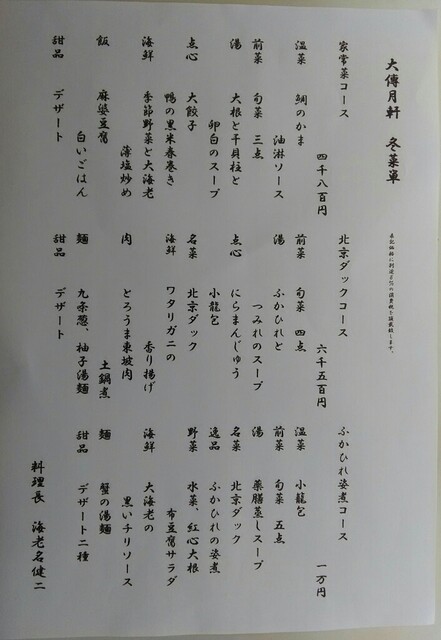 大傳月軒 冬菜單
表記価格に別途 の消費税を頂戴致します。
家常菜コース
四千八百円
温菜 鯛のかま
油淋ソース
前菜 旬菜 三点
湯 大根と干貝柱と
卵白のスープ
点心 大餃子
鴨の黒米春巻き
海鮮 季節野菜と大海老
薄塩炒め
飯 麻婆豆腐
白いごはん
甜品 デザート
北京ダックコース
六千五百円
前菜 旬菜 四点
湯 ふかひれと
つみれのスープ
点心 にらまんじゅう
小龍包
名菜 北京ダック
海鮮 ワタリガニの
香り揚げ
肉 とろうま東坡肉
土鍋煮
麺 九条葱、柚子湯麺
甜品 デザート
ふかひれ姿煮コース
一万円
温菜 小龍包
前菜 旬菜 五点
湯 薬膳蒸しスープ
名菜 北京ダック
逸品 ふかひれの姿煮
野菜 水菜、紅心大根
布豆腐サラダ
海鮮 大海老の
黒いチリソース
麺 蟹の湯麺
甜品 デザート二種
料理長 海老名健二